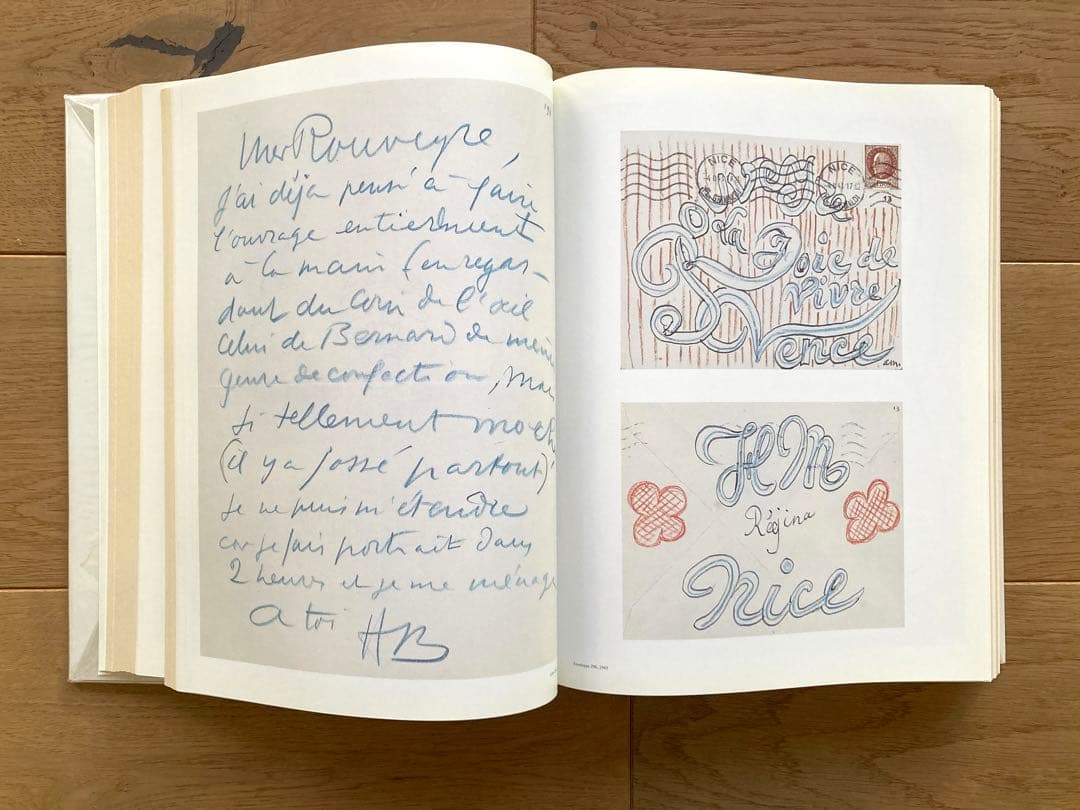 Mon Rouveyre,
J'ai déja pensé à faire
l'ouvrage entièrement
à la main (en regar-
dant du coin de l'œil
celui de Bernard de même
genre de confection, Mais
si tellement moche
(il y a fossé partout)
Je ne puis m'étendre
car je fais portrait dans
2 heures et je me ménage
A toi HB
NICE
NICE
13
la Joie de
Vivre
Vence
a.m.
13
HM
Régina
Nice